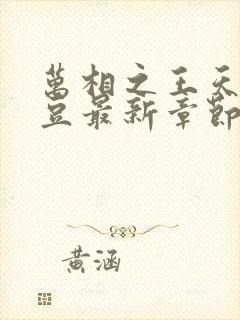 萬相之王天
豆最新章節
黃涵